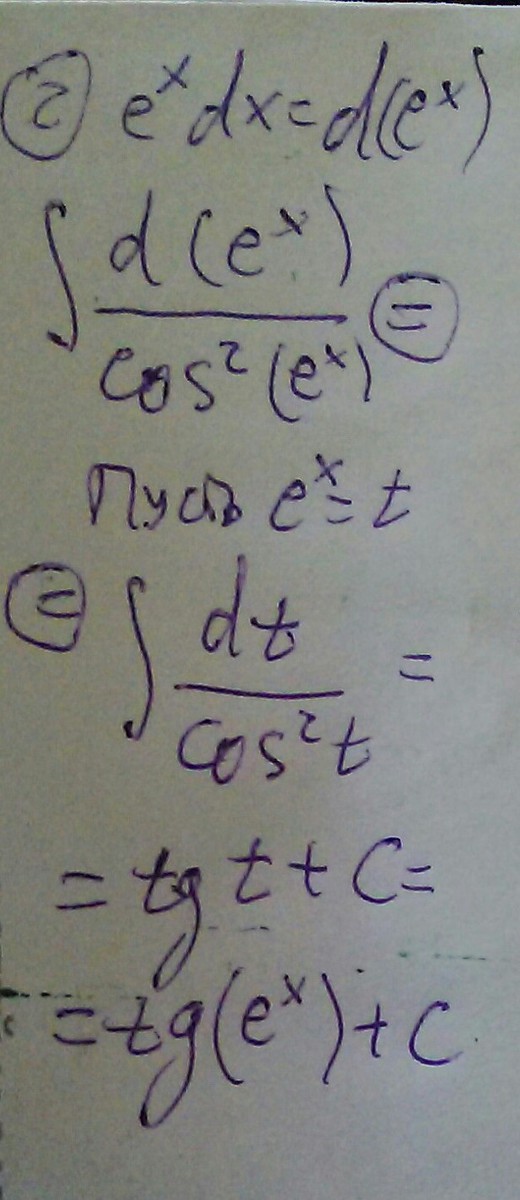 ② eˣdx=d(eˣ)
∫ d(eˣ) / cos²(eˣ) ⊜
Пусть eˣ=t
⊜ ∫ dt / cos²t =
= tg t + C =
= tg(eˣ)+C